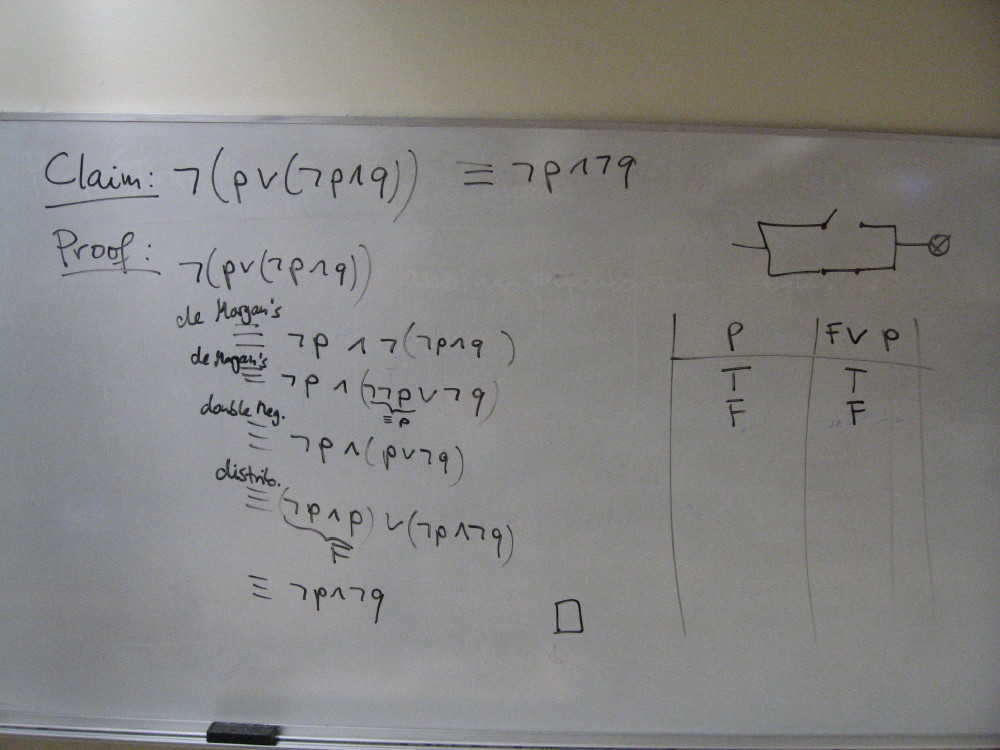 Claim: ¬(p∨(¬p∧q)) ≡ ¬p∧¬q
Proof: ¬(p∨(¬p∧q))
de Morgan's
≡ ¬p ∧ ¬(¬p∧q)
de Morgan's
≡ ¬p ∧ (¬¬p∨¬q)
≡p
double neg.
≡ ¬p∧(p∨¬q)
distrib.
≡ (¬p∧p) ∨ (¬p∧¬q)
F
≡ ¬p∧¬q
□
P F∨p
T T
F F